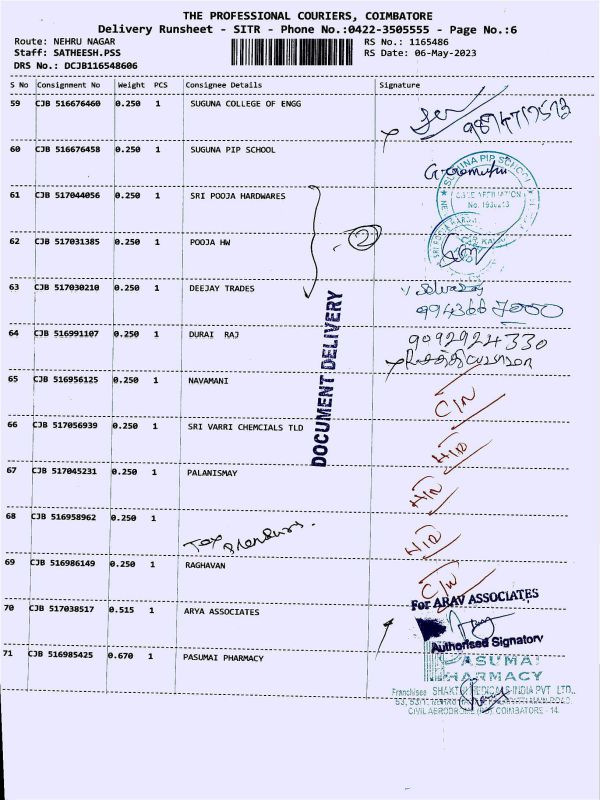 THE PROFESSIONAL COURIERS, COIMBATORE
Delivery Runsheet - SITR - Phone No.:0422-3505555 - Page No.:6
Route: NEHRU NAGAR RS No.: 1165486
Staff: SATHEESH.PSS RS Date: 06-May-2023
DRS No.: DCJB116548606
S No Consignment No Weight PCS Consignee Details Signature
59 CJB 516676460 0.250 1 SUGUNA COLLEGE OF ENGG
60 CJB 516676458 0.250 1 SUGUNA PIP SCHOOL
SUGUNA PIP SCHOOL
61 CJB 517044056 0.250 1 SRI POOJA HARDWARES
62 CJB 517031385 0.250 1 POOJA HW 2
63 CJB 517030210 0.250 1 DEEJAY TRADES
64 CJB 516991107 0.250 1 DURAI RAJ 9092924330
DOCUMENT DELIVERY
65 CJB 516956125 0.250 1 NAVAMANI C/N
66 CJB 517056939 0.250 1 SRI VARRI CHEMCIALS TLD
67 CJB 517045231 0.250 1 PALANISMAY
68 CJB 516958962 0.250 1
69 CJB 516986149 0.250 1 RAGHAVAN C/N
70 CJB 517038517 0.515 1 ARYA ASSOCIATES For ARAV ASSOCIATES
Authorised Signatory
71 CJB 516985425 0.670 1 PASUMAI PHARMACY
Franchisee SHAKTI MEDICALS INDIA PVT LTD.,
CIVIL AERODROME COIMBATORE - 14.